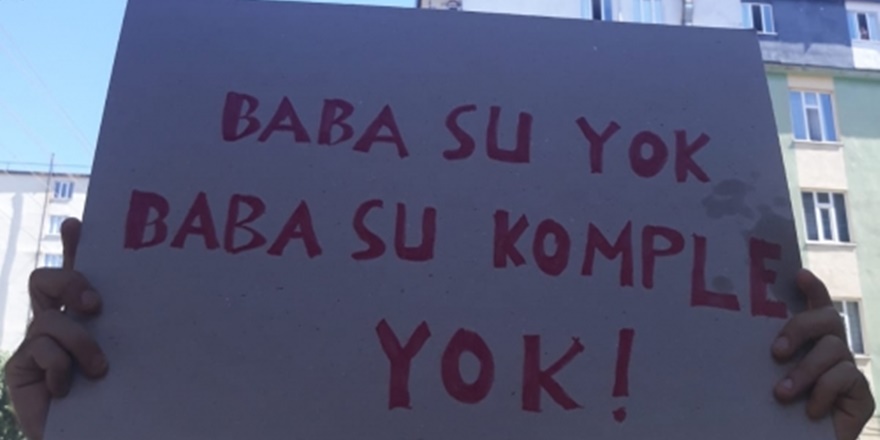 BABA SU YOK
BABA SU KOMPLE
YOK!